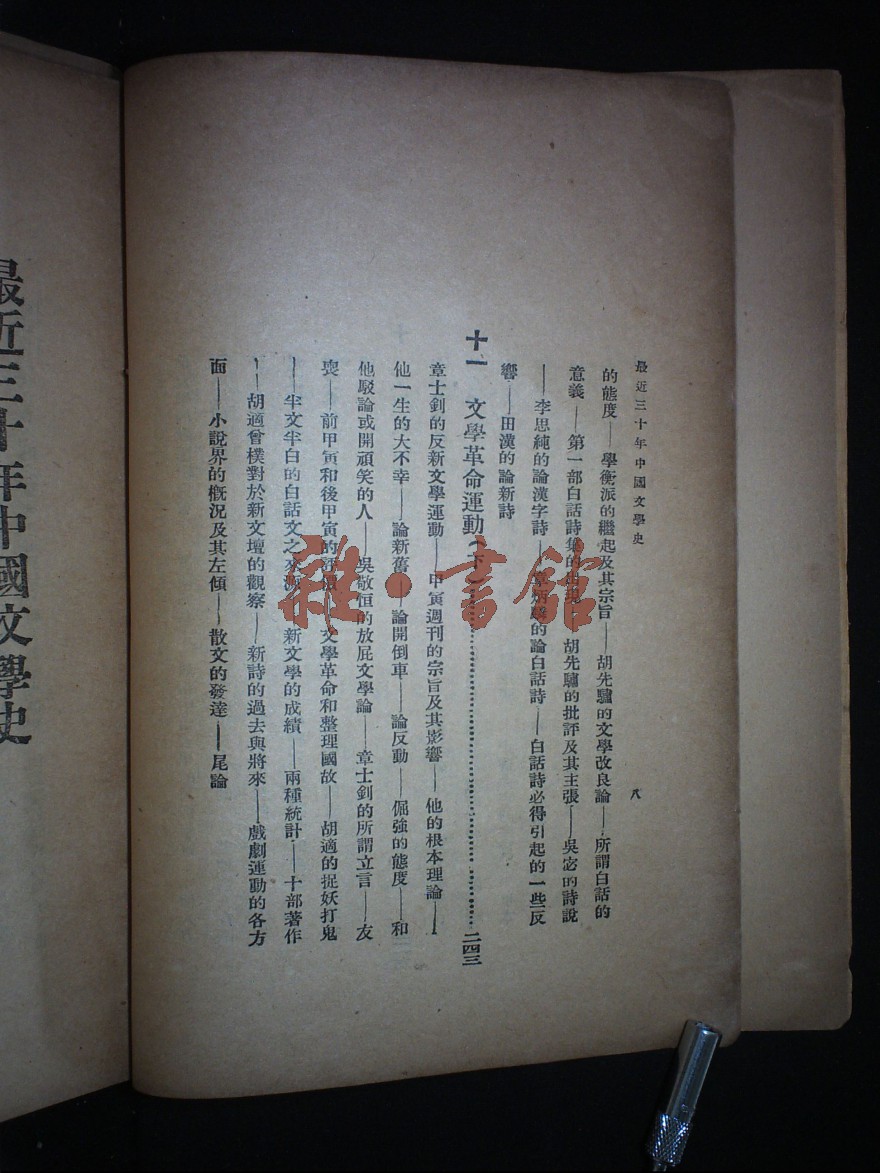 最近三十年中國文學史
八
的態度——學衡派的繼起及其宗旨——胡先驌的文學改良論——所謂白話的
意義——第一部白話詩集的出現——胡先驌的批評及其主張——吳宓的詩說
——李思純的論漢字詩——章炳麟的論白話詩——白話詩必得引起的一些反
響——田漢的論新詩
十一 文學革命運動（下）……二四三
章士釗的反新文學運動——甲寅週刊的宗旨及其影響——他的根本理論——
他一生的大不幸——論新舊——論開倒車——論反動——倔強的態度——和
他駁論或開頑笑的人——吳敬恒的放屁文學論——章士釗的所謂立言——友
喪——前甲寅和後甲寅的評價——文學革命和整理國故——胡適的捉妖打鬼
——半文半白的白話文之來源——新文學的成績——兩種統計——十部著作
——胡適曾樸對於新文壇的觀察——新詩的過去與將來——戲劇運動的各方
面——小說界的概況及其左傾——散文的發達——尾論
最近三十年中國文學史
雜·書館